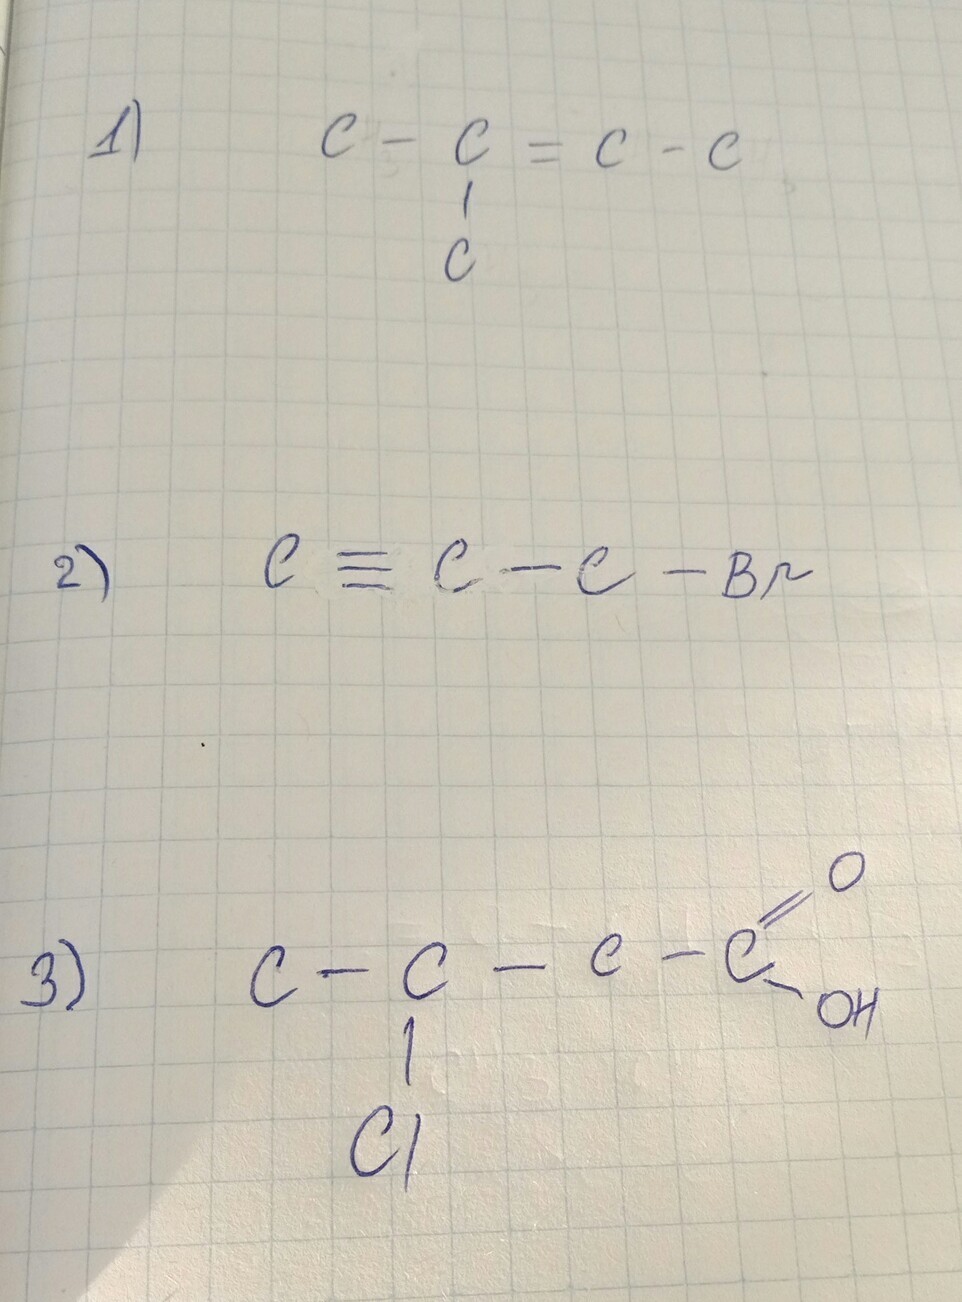 1) C - C = C - C
|
C
2) C ≡ C - C - Br
O
3) C - C - C - C
OH
|
Cl